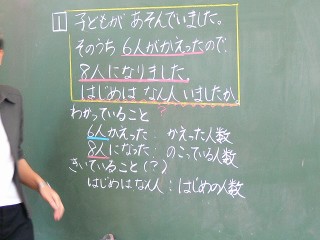 1 子どもが あそんでいました。
そのうち 6人がかえったので、
8人になりました。
はじめは なん人 いましたか。
わかっていること ?
6人かえった : かえった人数
8人になった : のこっている人数
きいていること(?)
はじめはなん人 : はじめの人数